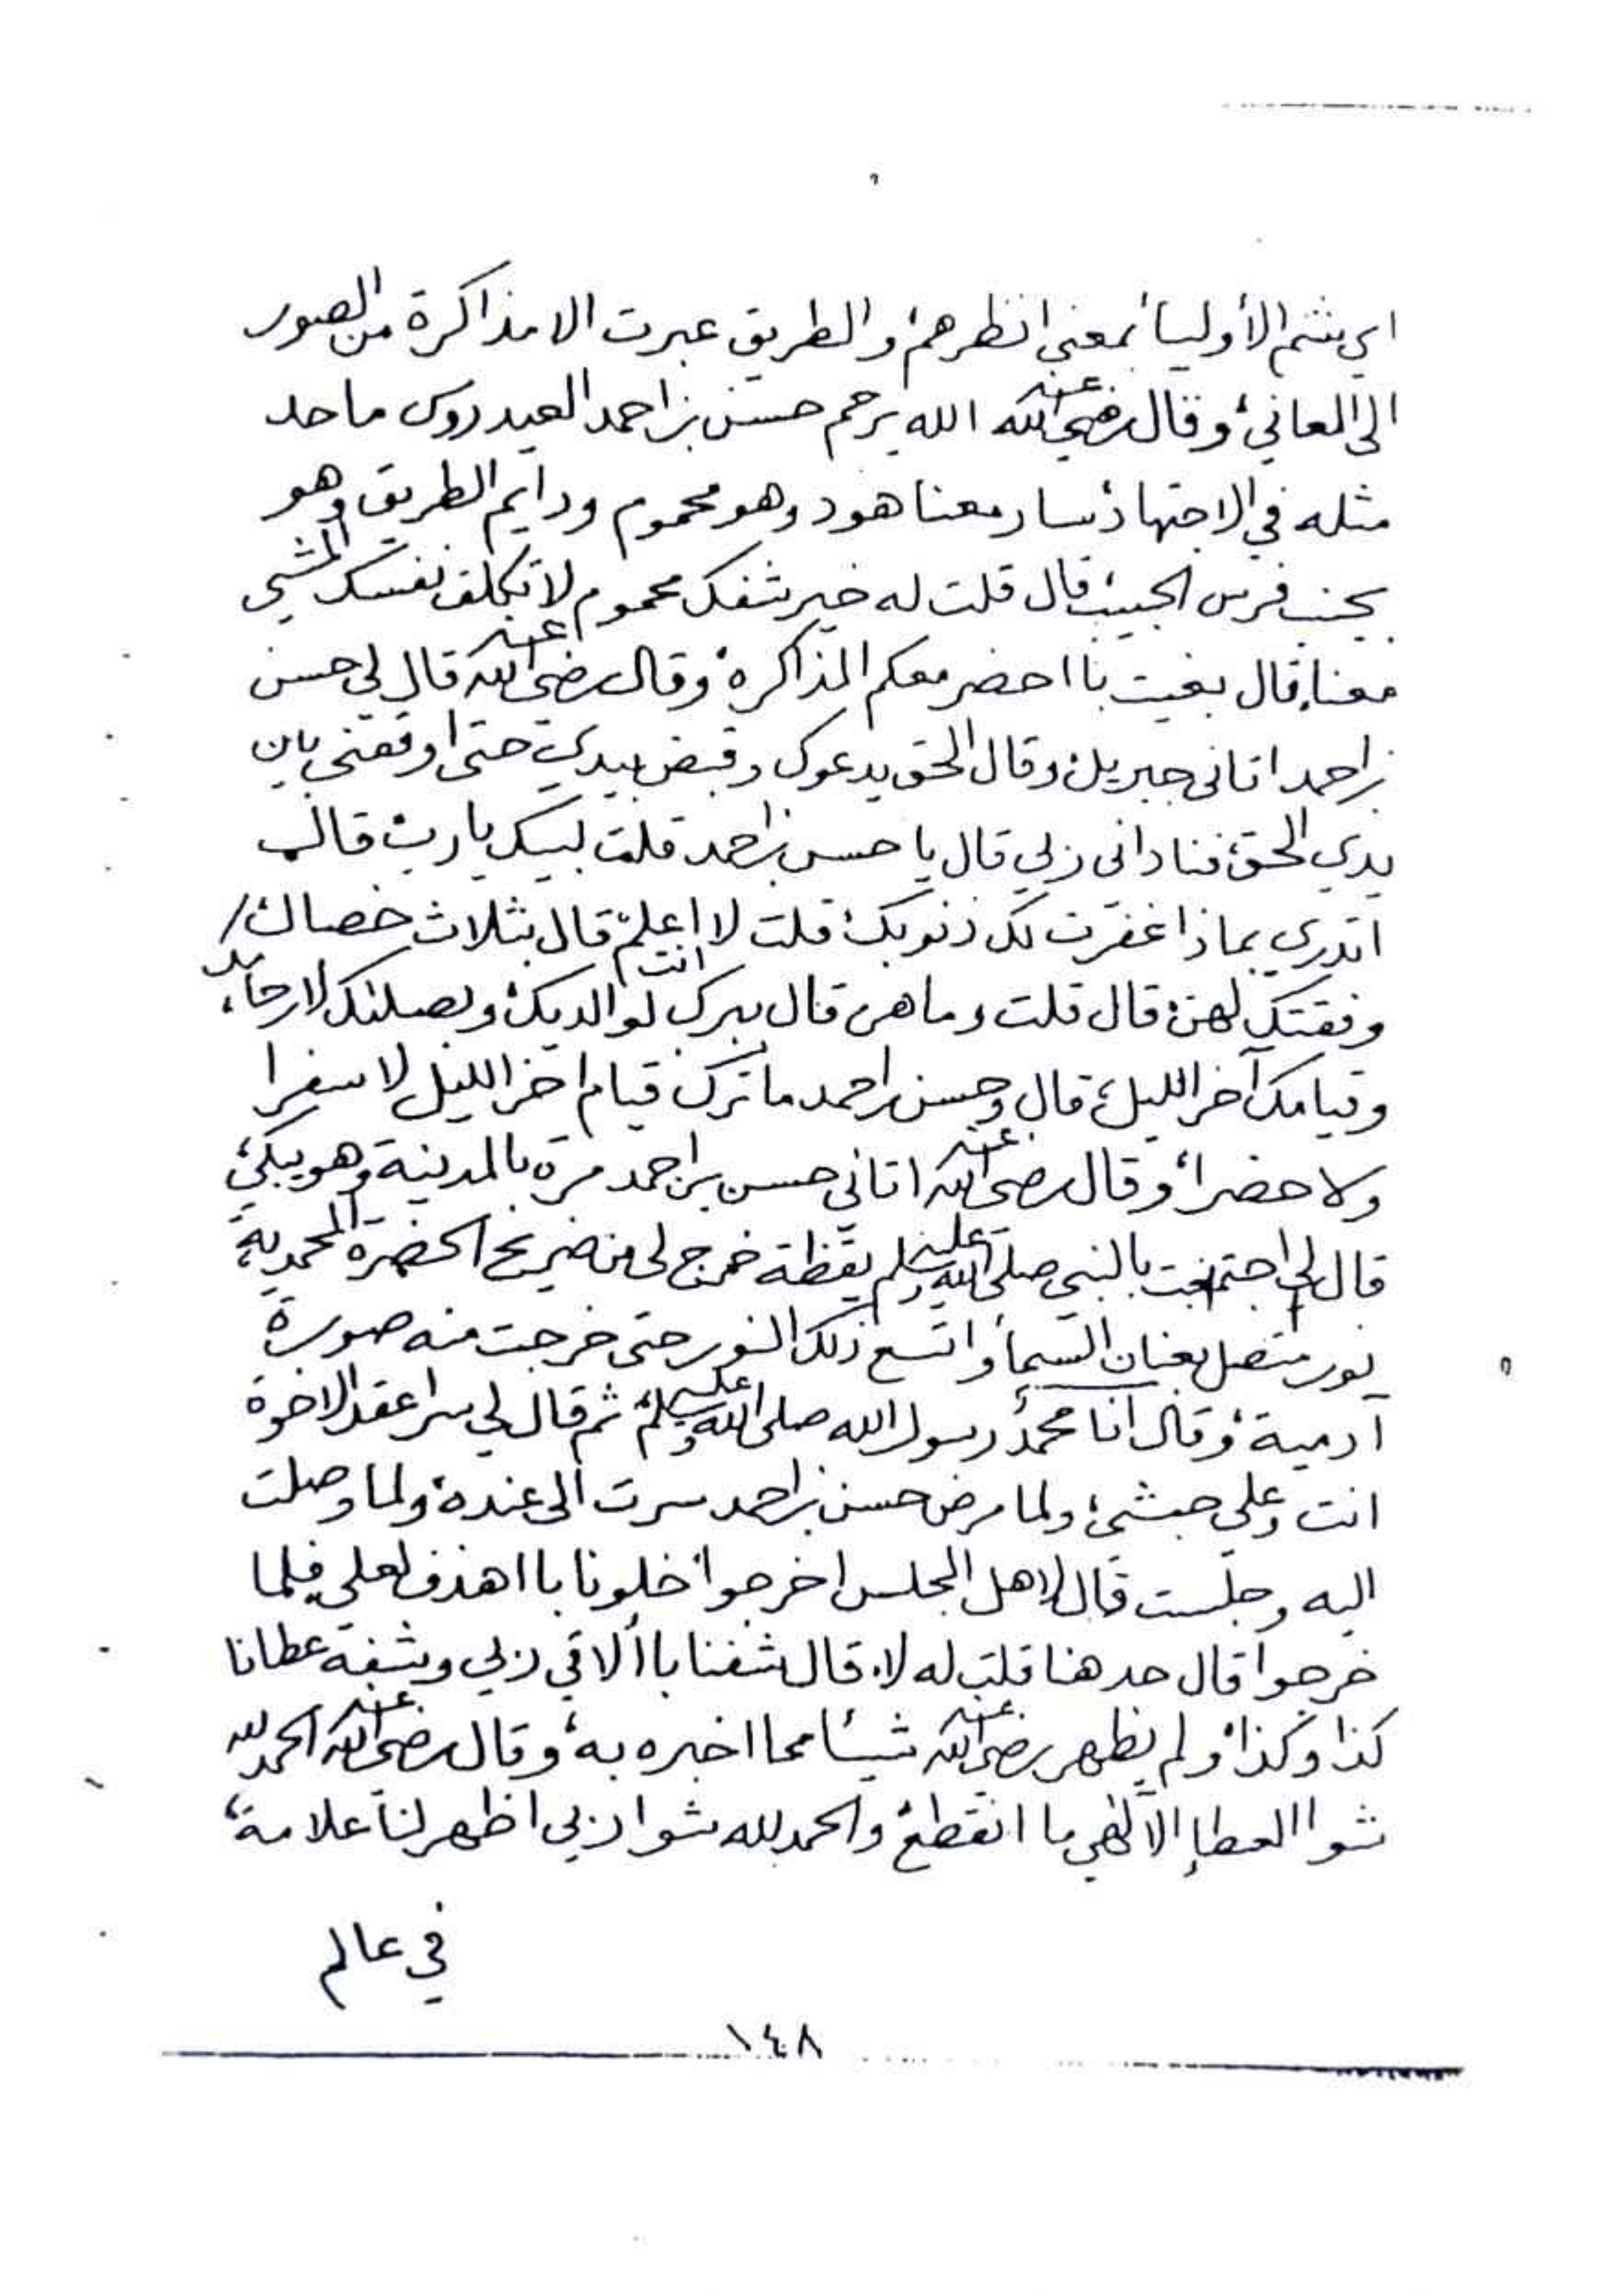 اي شم الأولياء بمعنى انظرهم، والطريق عبرت الا مذاكرة من الصور
الى المعاني، وقال رضي الله عنه الله يرحم حسن بن احمد العيدروس ما حد
مثله في الاجتهاد، سار معنا هود وهو محموم ودايم الطريق وهو
بجنب فرس الحبيب، قال قلت له خير شفك محموم لا تكلف نفسك المشي
معنا، قال بغيت با احضر معكم المذاكرة، وقال رضي الله عنه قال لي حسن
بن احمد اتاني جبريل، وقال الحق يدعوك وقبض بيدي حتى اوقفني بين
يدي الحق، فناداني ربي قال يا حسن بن احمد قلت لبيك يا رب، قال
اتدري بماذا غفرت لك ذنوبك، قلت لا انت اعلم، قال بثلاث خصال،
وفقتك لهن، قال قلت وما هن قال ببرك لوالديك، وبصلتك لارحامك،
وقيامك آخر الليل، قال وحسن بن احمد ما ترك قيام اخر الليل لا سفرا
ولا حضرا، وقال رضي الله عنه اتاني حسن بن احمد مرة بالمدينة وهو يبكي،
قال لي اجتمعت بالنبي صلى الله عليه وسلم يقظة خرج لي من ضريح الحضرة المحمدية،
نور متصل بعنان السماء، واتسع ذلك النور حتى خرجت منه صورة
آدمية، وقال انا محمد رسول الله صلى الله عليه وسلم، ثم قال لي سر اعقد الاخوة
انت وعلي حبشي، ولما مرض حسن بن احمد سرت الى عنده، ولما وصلت
اليه وجلست قال لاهل المجلس اخرجوا، خلونا با اهذف لعلي، فلما
خرجوا قال حد هنا قلت له لا، قال شفنا با ألاقي ربي وشفه عطانا
كذا وكذا، ولم يظهر رضي الله عنه شيئا مما اخبره به، وقال رضي الله عنه الحمد لله
شوا العطاء الآلهي ما انقطع، والحمد لله شوا ربي اظهر لنا علامة،
في عالم
١٤٨